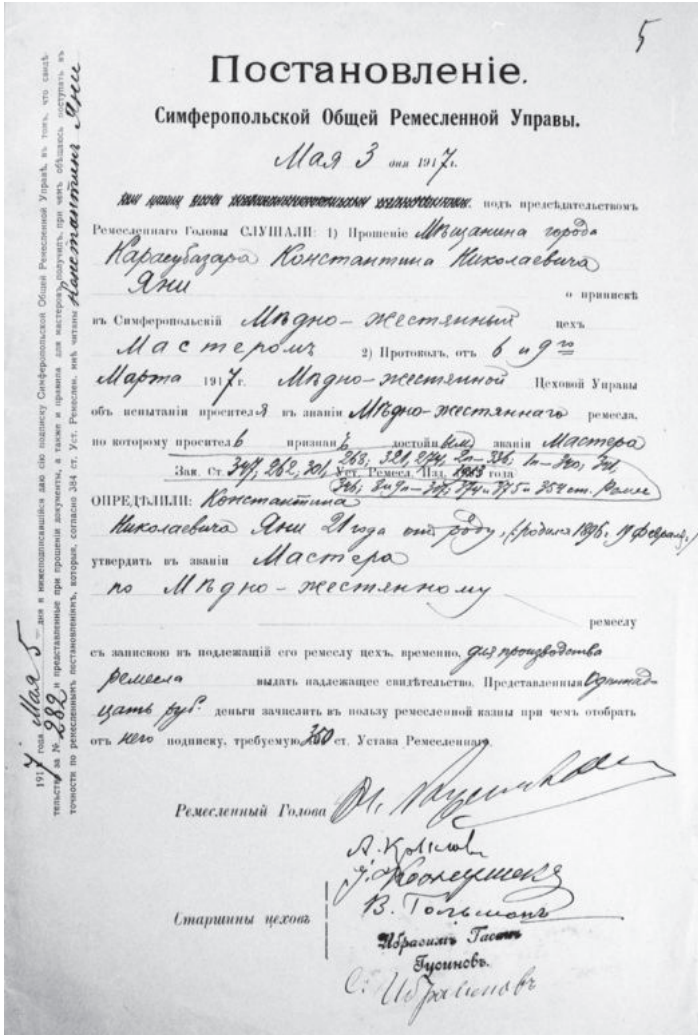 5
Постановленіе.
Симферопольской Общей Ремесленной Управы.
Мая 3 дня 1917 г.
подъ предсѣдательствомъ
Ремесленнаго Головы СЛУШАЛИ: 1) Прошеніе Мѣщанина города
Карасубазара Константина Николаевича
Яни о припискѣ
въ Симферопольскій Мѣдно-жестянный цехъ
Мастеромъ 2) Протоколъ, отъ 6 и 9го
Марта 1917 г. Мѣдно-жестянной Цеховой Управы
объ испытаніи просителя въ знаніи Мѣдно-жестяннаго ремесла,
по которому проситель признанъ достойнымъ званія Мастера
263, 321, 274, 2п-336, 1п-340, 341,
Зак. Ст. 347, 262, 301, Уст. Ремесл. Изд. 1913 года
346, 8 и 9п-307, 374 и 375 и 354 ст. Ремес
ОПРЕДѢЛИЛИ: Константина
Николаевича Яни 21 года отъ роду, (родился 1896 г. 19 февраля)
утвердить въ званіи Мастера
по Мѣдно-жестянному
ремеслу
съ запискою въ подлежащій его ремеслу цехъ, временно, для производства
ремесла выдать надлежащее свидѣтельство. Представленныя Одиннад-
цать руб. деньги зачислить въ пользу ремесленной казны при чемъ отобрать
отъ него подписку, требуемую 350 ст. Устава Ремесленнаго.
Ремесленный Голова
А. Крылов
Старшины цеховъ
В. Гольманъ
Ибрагимъ
Гусиновъ.
С. Ибрагимовъ
1917 года Мая 5 дня я нижеподписавшійся даю сію подписку Симферопольской Общей Ремесленной Управѣ, въ томъ, что свидѣ-
тельство за № 282 и представленные при прошеніи документы, а также и правила для мастеровъ получилъ, при чемъ обѣщаюсь поступать въ
точности по ремесленнымъ постановленіямъ, которыя, согласно 384 ст. Уст. Ремеслен. мнѣ читаны Константинъ Яни